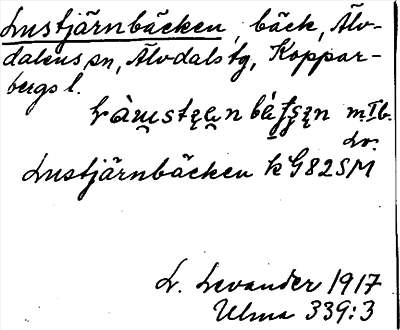 Lustjärnbäcken, bäck, Älv-
dalens sn, Älvdals tg, Koppar-
bergs l.
mIb.
Lv.
Lustjärnbäcken k G82SM
L. Levander 1917
Ulma 339:3